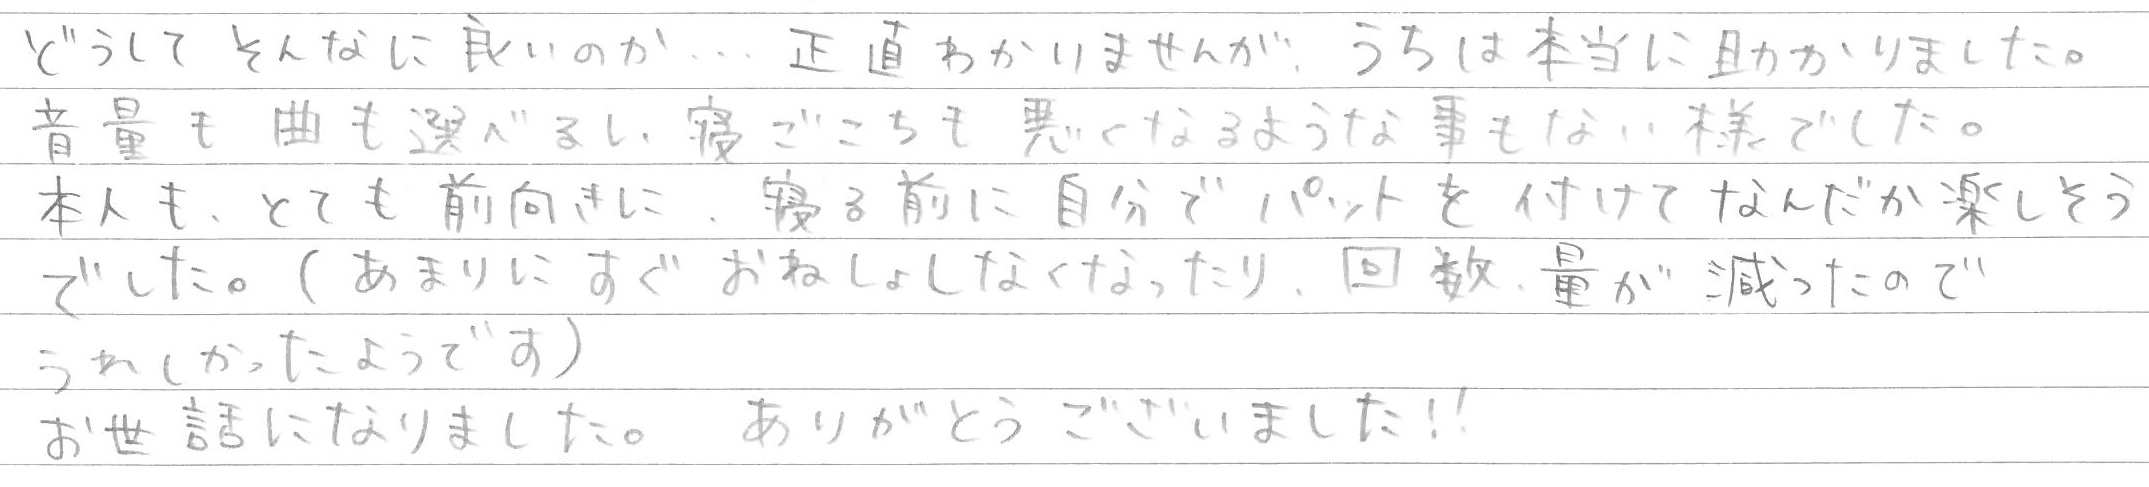 どうしてそんなに良いのか…正直わかりませんが、うちは本当に助かりました。
音量も曲も選べるし、寝ごこちも悪くなるような事もない様でした。
本人も、とても前向きに、寝る前に自分でパットを付けてなんだか楽しそう
でした。(あまりにすぐおねしょしなくなったり、回数、量が減ったので
うれしかったようです)
お世話になりました。 ありがとうございました!!